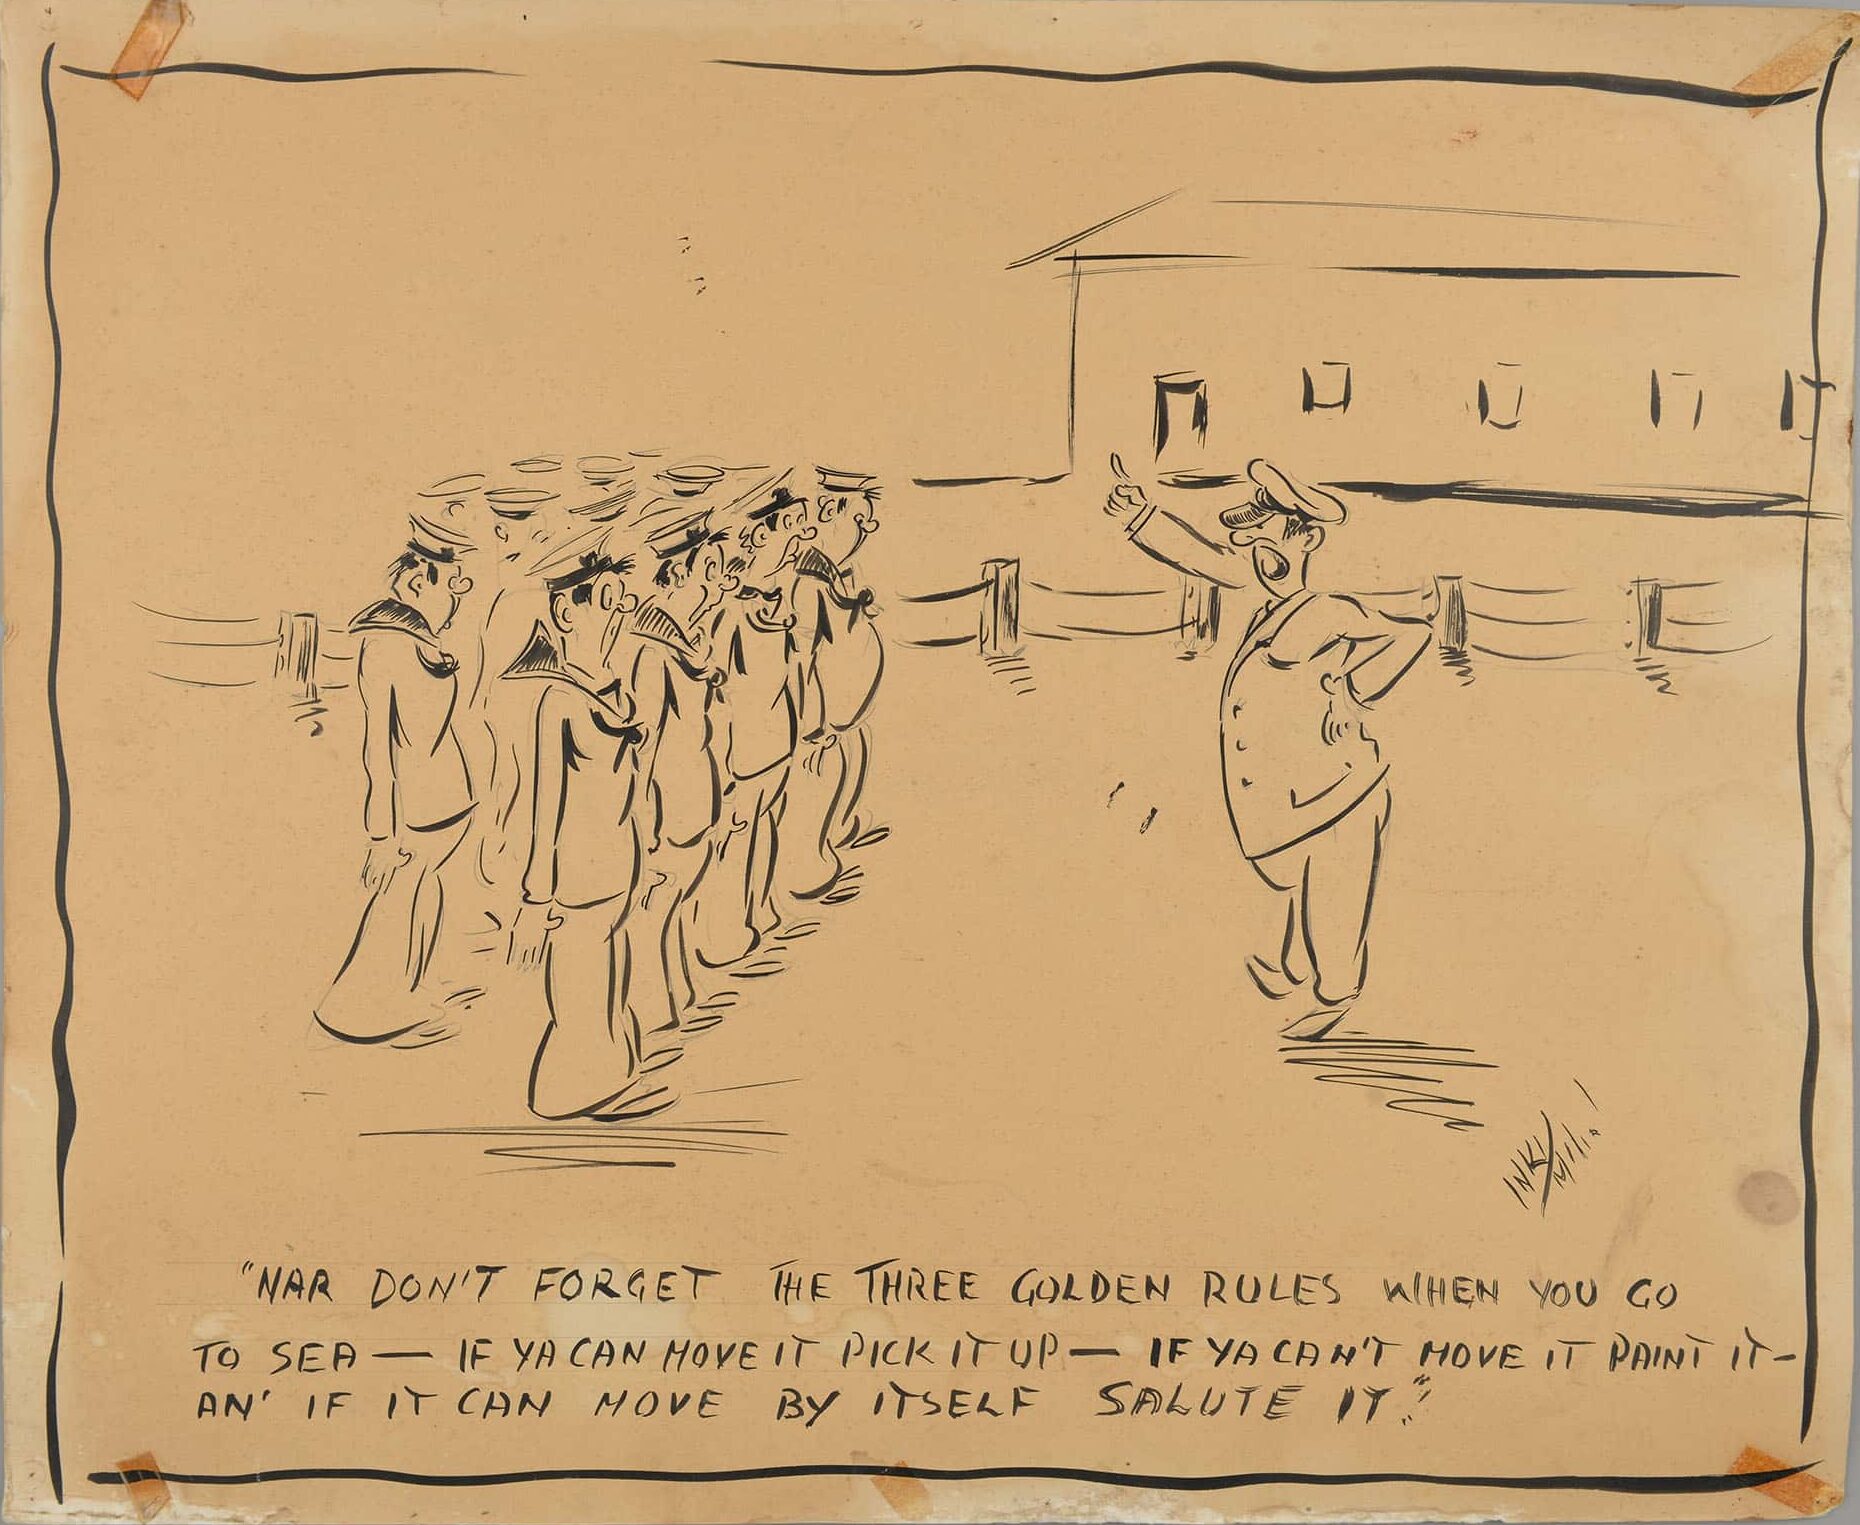 INKY
"NAR DON'T FORGET THE THREE GOLDEN RULES WHEN YOU GO
TO SEA — IF YA CAN MOVE IT PICK IT UP — IF YA CAN'T MOVE IT PAINT IT -
AN' IF IT CAN MOVE BY ITSELF SALUTE IT."